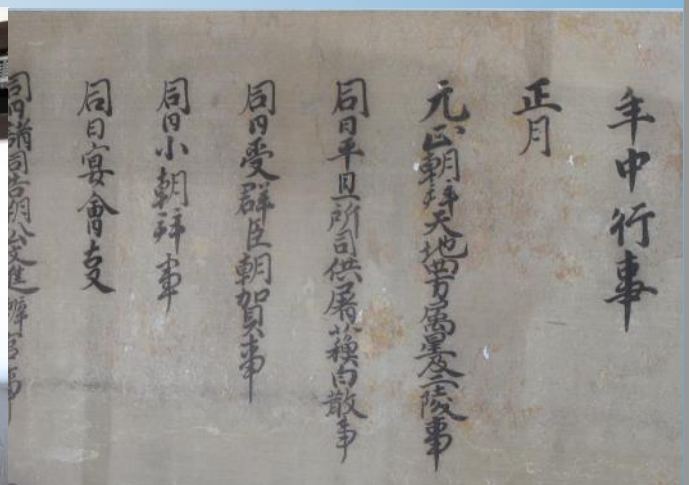 年中行事
正月
元正朝拜天地四方属星及二陵事
同日平旦所司供屠蘓白散事
同日受群臣朝賀事
同日小朝拜事
同日宴會事
同日諸司告朔公文進辨官事